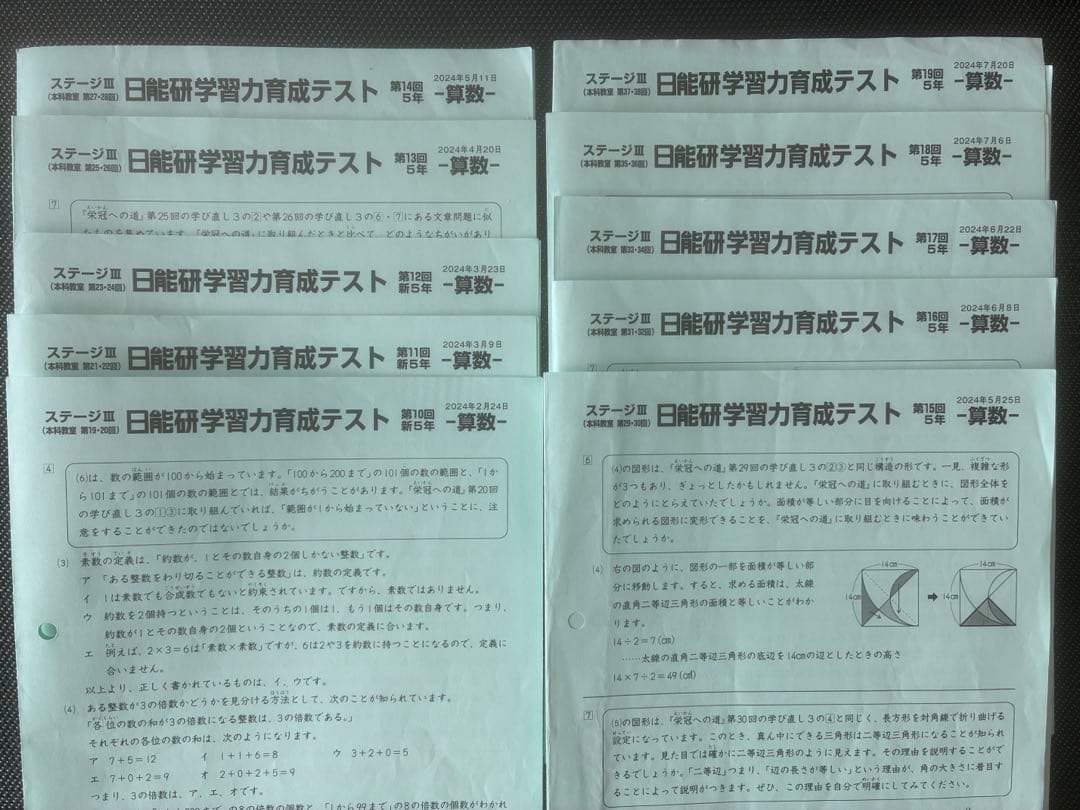 ステージⅢ
(本科教室 第27・28回)
日能研学習力育成テスト
第14回
5年
2024年5月11日
-算数-
ステージⅢ
(本科教室 第25・26回)
日能研学習力育成テスト
第13回
5年
2024年4月20日
-算数-
7
「栄冠への道」第25回の学び直し3の②や第26回の学び直し3の⑥・⑦にある文章問題に似
たものを集めています。「栄冠への道」に取り組んだときと比べて、どのようなちがいがあり
ステージⅢ
(本科教室 第23・24回)
日能研学習力育成テスト
第12回
新5年
2024年3月23日
-算数-
ステージⅢ
(本科教室 第21・22回)
日能研学習力育成テスト
第11回
新5年
2024年3月9日
-算数-
ステージⅢ
(本科教室 第19・20回)
日能研学習力育成テスト
第10回
新5年
2024年2月24日
-算数-
4
(6)は、数の範囲が100から始まっています。「100から200まで」の101個の数の範囲と、「1か
ら101まで」の101個の数の範囲とでは、結果がちがうことがあります。「栄冠への道」第20回
の学び直し3の①③に取り組んでいれば、「範囲が1から始まっていない」ということに、注
意をすることができたのではないでしょうか。
(3) 素数の定義は、「約数が、1とその数自身の2個しかない整数」です。
ア 「ある整数をわり切ることができる整数」は、約数の定義です。
イ 1は素数でも合成数でもないと約束されています。ですから、素数ではありません。
ウ 約数を2個持つということは、そのうちの1個は1、もう1個はその数自身です。つまり、
約数が1とその数自身の2個ということなので、素数の定義に合います。
エ 例えば、2×3=6は「素数×素数」ですが、6は2や3を約数に持つことになるので、定義に
合いません。
以上より、正しく書かれているものは、イ、ウです。
(4) ある整数が3の倍数かどうかを見分ける方法として、次のことが知られています。
「各位の数の和が3の倍数になる整数は、3の倍数である。」
それぞれの各位の数の和は、次のようになります。
ア 7+5=12 イ 1+1+6=8 ウ 3+2+0=5
エ 7+0+2=9 オ 2+0+2+5=9
つまり、3の倍数は、ア、エ、オです。
ステージⅢ
(本科教室 第37・38回)
日能研学習力育成テスト
第19回
5年
2024年7月20日
-算数-
ステージⅢ
(本科教室 第35・36回)
日能研学習力育成テスト
第18回
5年
2024年7月6日
-算数-
ステージⅢ
(本科教室 第33・34回)
日能研学習力育成テスト
第17回
5年
2024年6月22日
-算数-
ステージⅢ
(本科教室 第31・32回)
日能研学習力育成テスト
第16回
5年
2024年6月8日
-算数-
ステージⅢ
(本科教室 第29・30回)
日能研学習力育成テスト
第15回
5年
2024年5月25日
-算数-
6
(4)の図形は、「栄冠への道」第29回の学び直し3の②③と同じ構造の形です。一見、複雑な形
が3つもあり、ぎょっとしたかもしれません。「栄冠への道」に取り組むときに、図形全体を
どのようにとらえていたでしょうか。面積が等しい部分に目を向けることによって、面積が
求められる図形に変形できることを、「栄冠への道」に取り組むときに味わうことができてい
たでしょうか。
(4) 右の図のように、図形の一部を面積が等しい部
分に移動します。すると、求める面積は、太線
の直角二等辺三角形の面積と等しいことがわか
ります。
14÷2=7(cm)
……太線の直角二等辺三角形の底辺を14cmの辺としたときの高さ
14×7÷2=49(cm²)
14cm
14cm
14cm
14cm
7
(5)の図形は、「栄冠への道」第30回の学び直し3の④と同じく、長方形を対角線で折り曲げる
設定になっています。このとき、真ん中にできる三角形は二等辺三角形になることが知られ
ています。見た目では確かに二等辺三角形のように見えます。その理由を説明することがで
きるでしょうか。「二等辺」つまり、「辺の長さが等しい」という理由が、角の大きさに着目す
ることによって説明がつきます。ぜひ、この理由を自分で明確にしてみてください。